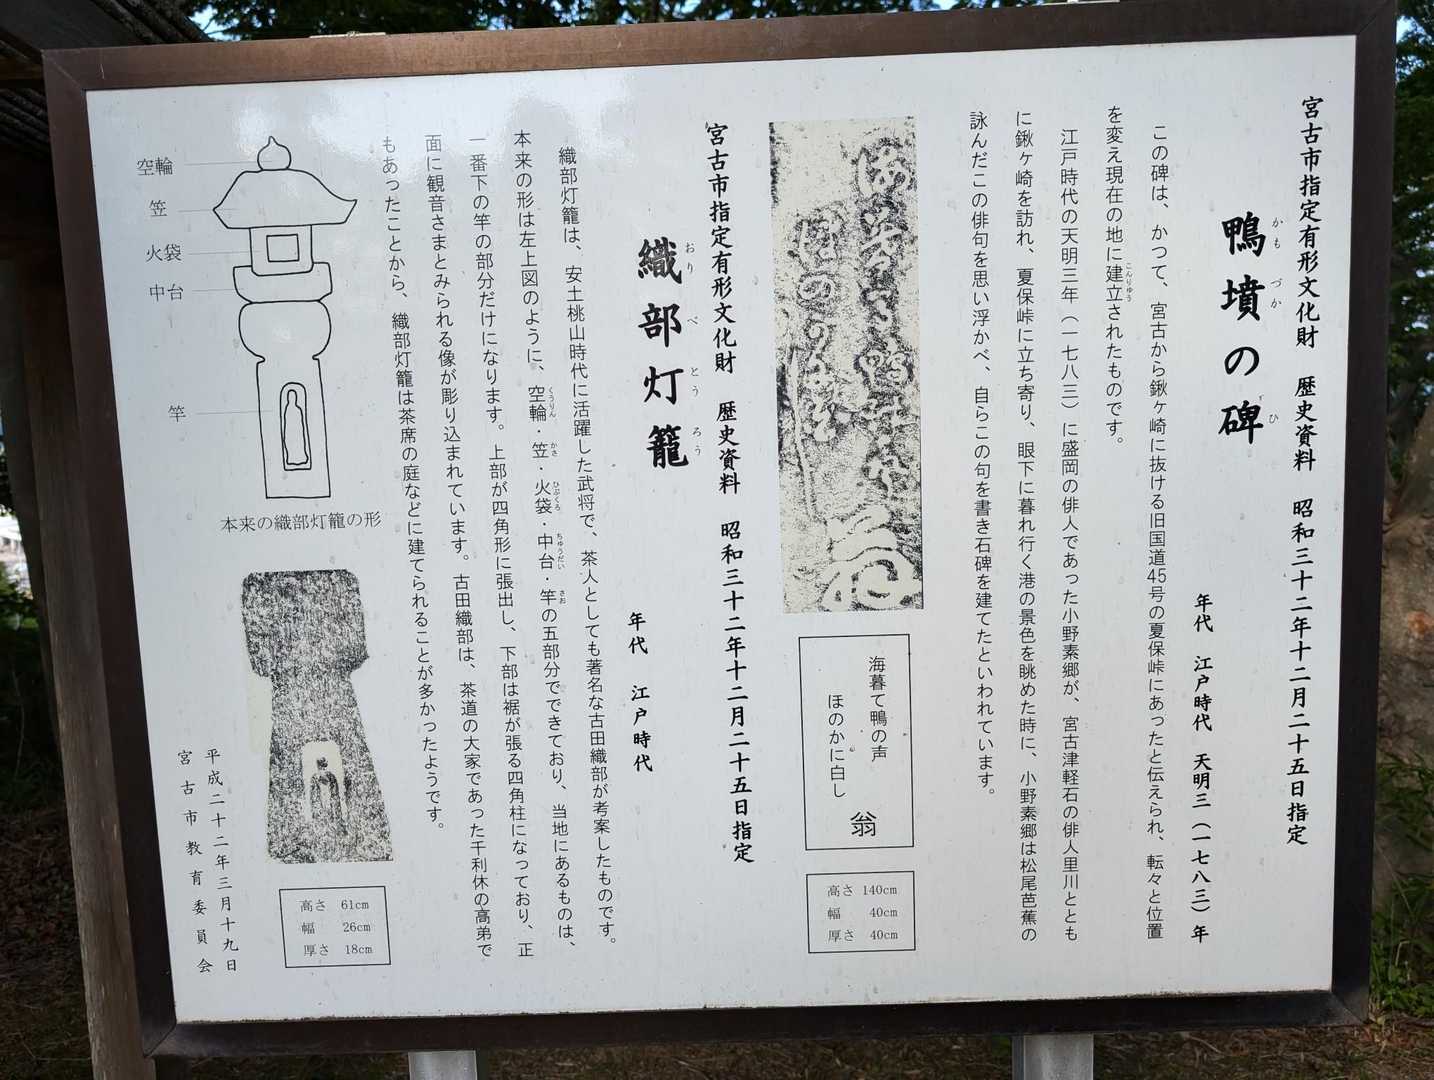 宮古市指定有形文化財　歴史資料　昭和三十二年十二月二十五日指定
鴨墳の碑
かも づか ひ
年代　江戸時代　天明三（一七八三）年
この碑は、かつて、宮古から鍬ヶ崎に抜ける旧国道45号の夏保峠にあったと伝えられ、転々と位置
を変え現在の地に建立されたものです。
こんりゅう
江戸時代の天明三年（一七八三）に盛岡の俳人であった小野素郷が、宮古津軽石の俳人里川ととも
に鍬ヶ崎を訪れ、夏保峠に立ち寄り、眼下に暮れ行く港の景色を眺めた時に、小野素郷は松尾芭蕉の
詠んだこの俳句を思い浮かべ、自らこの句を書き石碑を建てたといわれています。
海暮て鴨の声
ほのかに白し
翁
高さ 140cm
幅 40cm
厚さ 40cm
宮古市指定有形文化財　歴史資料　昭和三十二年十二月二十五日指定
織部灯籠
おり べ とう ろう
年代　江戸時代
織部灯籠は、安土桃山時代に活躍した武将で、茶人としても著名な古田織部が考案したものです。
本来の形は左上図のように、空輪・笠・火袋・中台・竿の五部分でできており、当地にあるものは、
くうりん かさ ひぶくろ ちゅうだい さお
一番下の竿の部分だけになります。上部が四角形に張出し、下部は裾が張る四角柱になっており、正
面に観音さまとみられる像が彫り込まれています。古田織部は、茶道の大家であった千利休の高弟で
もあったことから、織部灯籠は茶席の庭などに建てられることが多かったようです。
空輪
笠
火袋
中台
竿
本来の織部灯籠の形
高さ 61cm
幅 26cm
厚さ 18cm
平成二十二年三月十九日
宮古市教育委員会